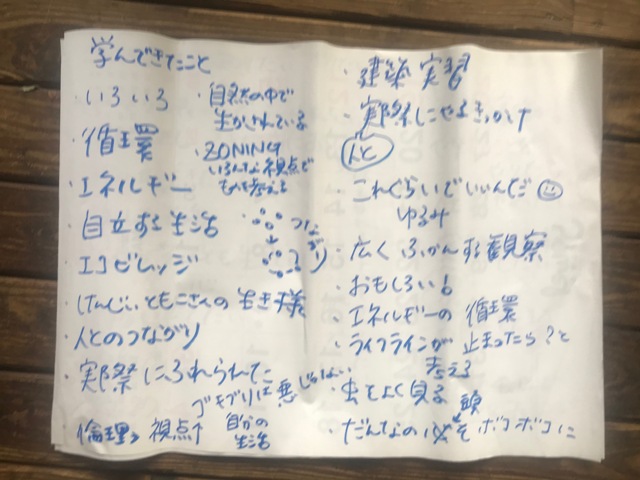 学んできたこと
・いろいろ
・循環
・エネルギー
・自立する生活
・エコビレッジ
・けんじい、ともこさんの生き様
・人とのつながり
・実際にふれられた
ゴキブリは悪じゃない
・倫理 視点↑ 自分の
生活
・自然の中で
生かされている
・ZONING
いろんな視点で
ものを考える
つながり
・建築実習
・実際にやるきっかけ
人と
・これぐらいでいいんだ
ゆるみ
・広くふかんする観察
・おもしろい!
・エネルギーの循環
・ライフラインが止まったら?と
考える
・虫をよく見る
頭
・だんなの をボコボコに